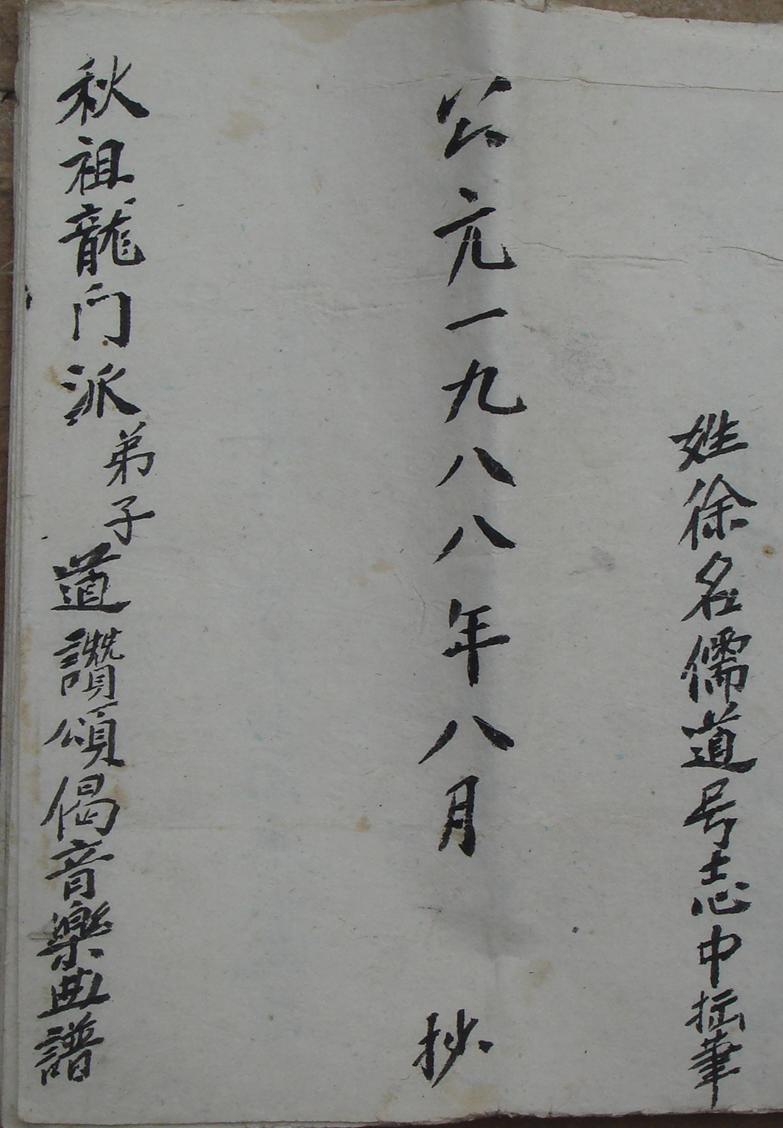 姓徐名儒道号志中拙筆
公元一九八八年八月 抄
秋祖龍门派弟子道讚頌偈音樂曲譜